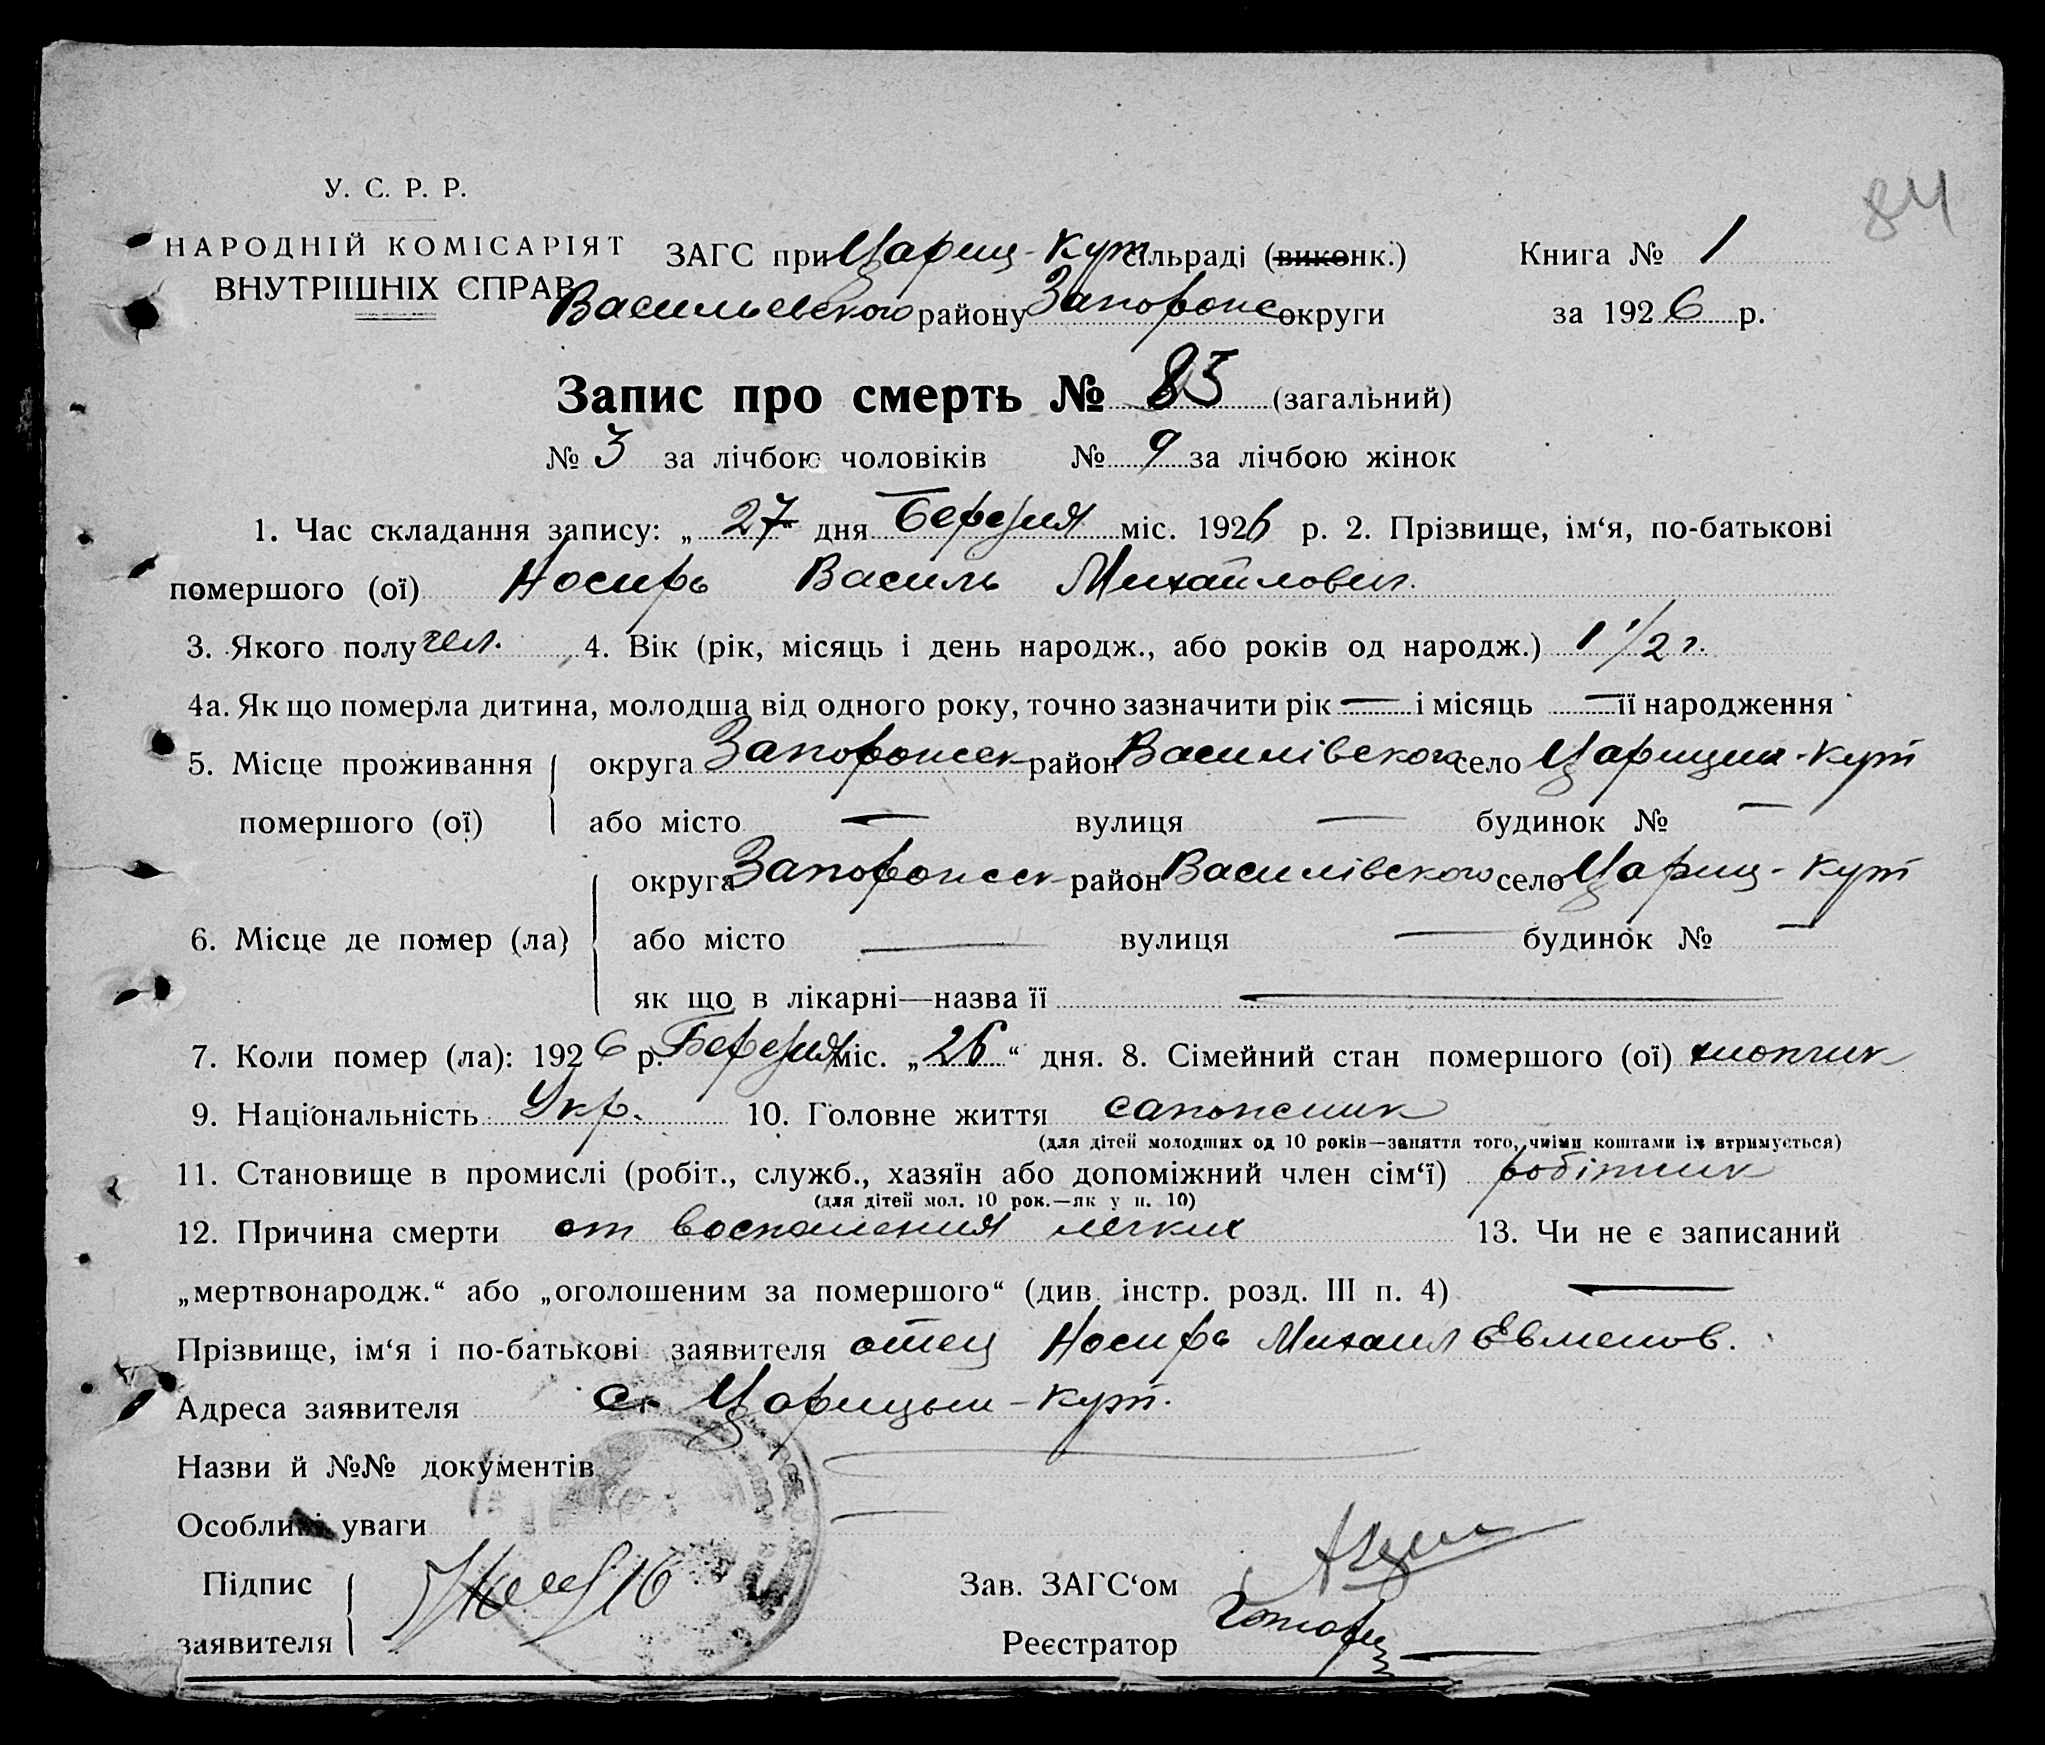 84
У. С. Р. Р.
НАРОДНІЙ КОМІСАРІЯТ
ВНУТРІШНІХ СПРАВ
ЗАГС при Цариц-Кут сільраді (виконк.)
Васильевского району Запорожс округи
Книга № 1
за 1926 р.
Запис про смерть № 83 (загальний)
№ 3 за лічбою чоловіків № 9 за лічбою жінок
1. Час складання запису: „27“ дня Березня міс. 1926 р. 2. Прізвище, ім‘я, по-батькові
помершого (ої) Носирь Василь Михайлович.
3. Якого полу чел. 4. Вік (рік, місяць і день народж., або років од народж.) 1 1/2 г.
4а. Як що померла дитина, молодша від одного року, точно зазначити рік — і місяць — її народження
5. Місце проживання помершого (ої)
округа Запорожск район Василівского село Царицин-Кут
або місто — вулиця — будинок № —
6. Місце де помер (ла)
округа Запорожск район Василівского село Цариц-Кут
або місто — вулиця — будинок № —
як що в лікарні—назва її —
7. Коли помер (ла): 1926 р. Березня міс. „26“ дня. 8. Сімейний стан помершого (ої) хлопчик
9. Національність Укр. 10. Головне життя сапожник
(для дітей молодших од 10 років—заняття того, чиїми коштами їх втримується)
11. Становище в промислі (робіт., служб., хазяїн або допоміжний член сім‘ї) робітник
(для дітей мол. 10 рок.—як у п. 10)
12. Причина смерти от воспаления легких 13. Чи не є записаний
„мертвонародж.“ або „оголошеним за помершого“ (див. інстр. розд. III п. 4) —
Прізвище, ім‘я і по-батькові заявителя отец Носирь Михаил Евменов.
Адреса заявителя с. Царицын-Кут.
Назви й №№ документів —
Особливі уваги —
Підпис заявителя
Зав. ЗАГС‘ом
Реєстратор